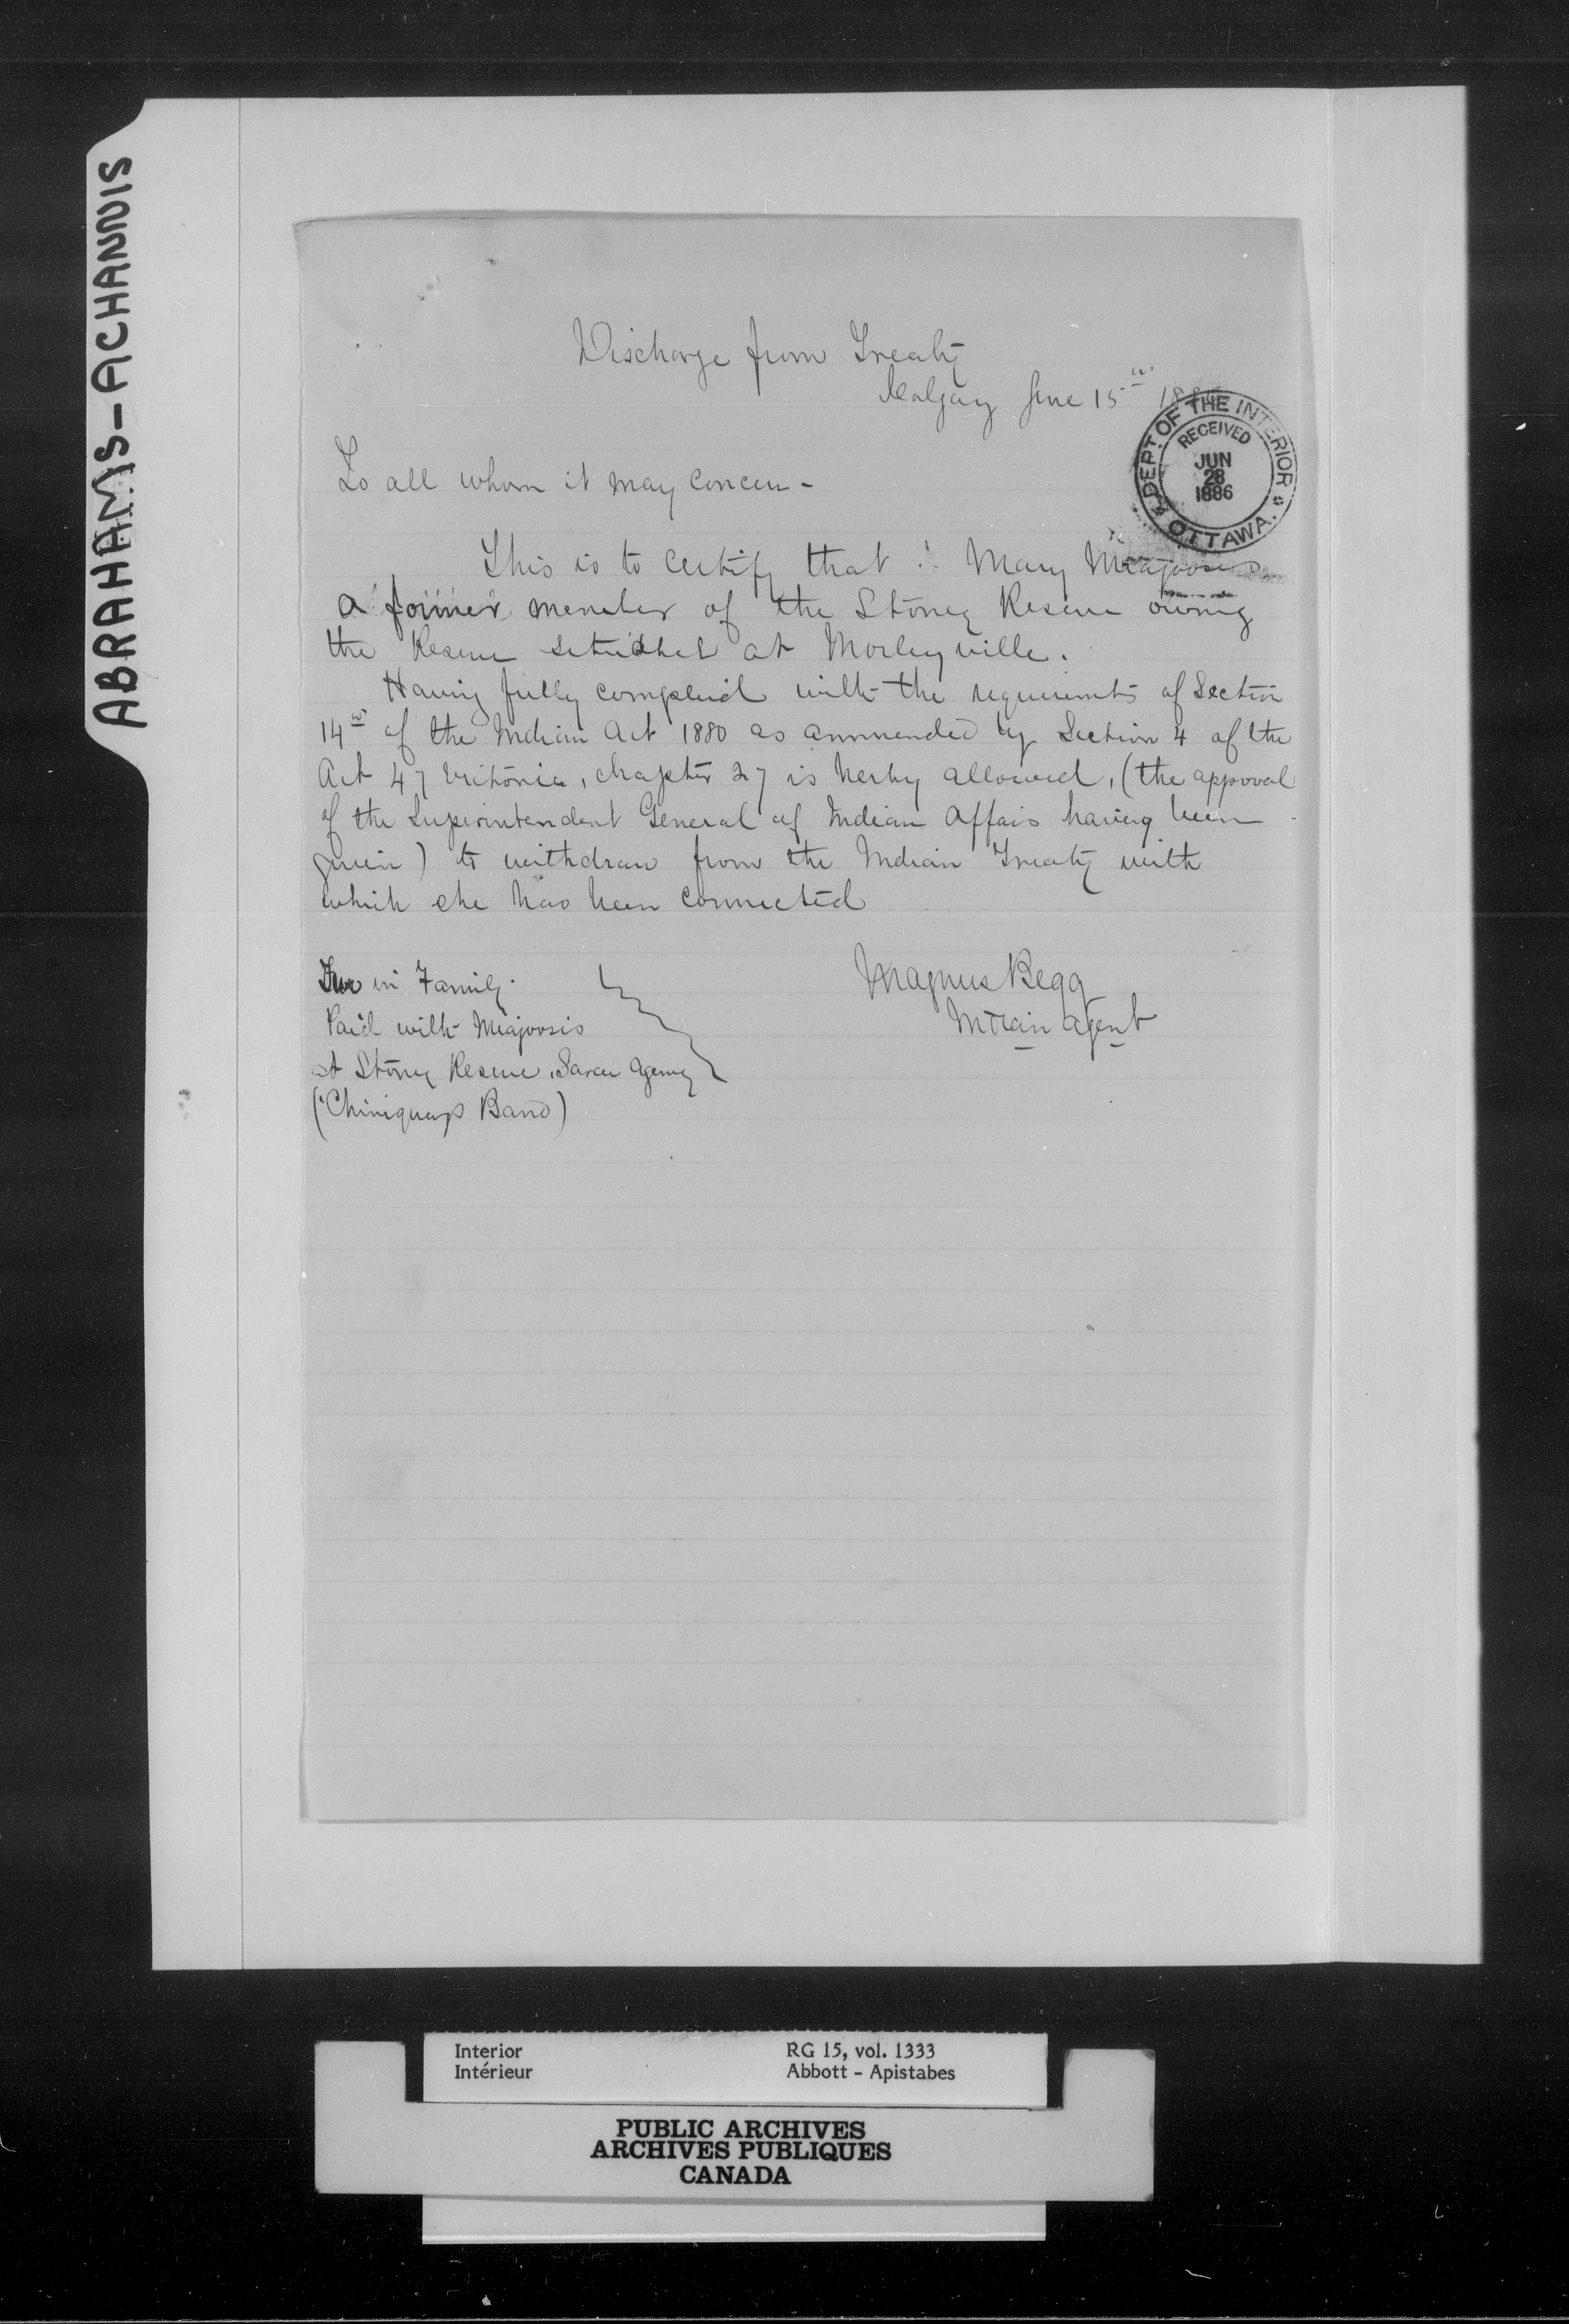 ABRAHAMS-ACHANNIS
Discharge from Treaty
Calgary June 15th 188
DEPT. OF THE INTERIOR
RECEIVED
JUN
28
1886
OTTAWA.
To all whom it may concern -
This is to certify that : Mary Meajoosis
a former member of the Stoney Reserve owning
the Reserve at Morleyville.
Having fully complied with the requirments of Section
14th of the Indian Act 1880 as ammended by Section 4 of the
Act 47 Victoria, chapter 27 is herby allowed, (the approval
of the Superintendent General of Indian Affairs having been
given) to withdraw from the Indian Treaty with
which she has been connected
Magnus Begg
Indian Agent
Two in Family.
Paid with Meajoosis
at Stoney Reserve, Sarcee Agency
(Chiniquays Band)
Interior
Intérieur
RG 15, vol. 1333
Abbott - Apistabes
PUBLIC ARCHIVES
ARCHIVES PUBLIQUES
CANADA